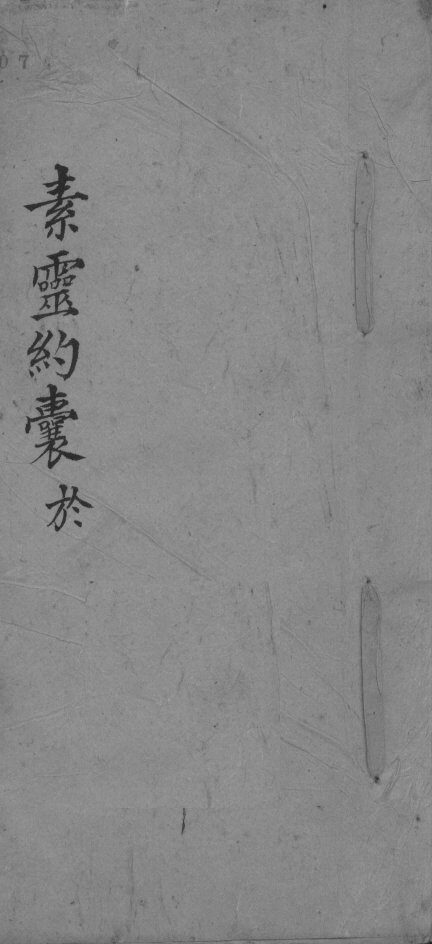 素靈約囊 於
07